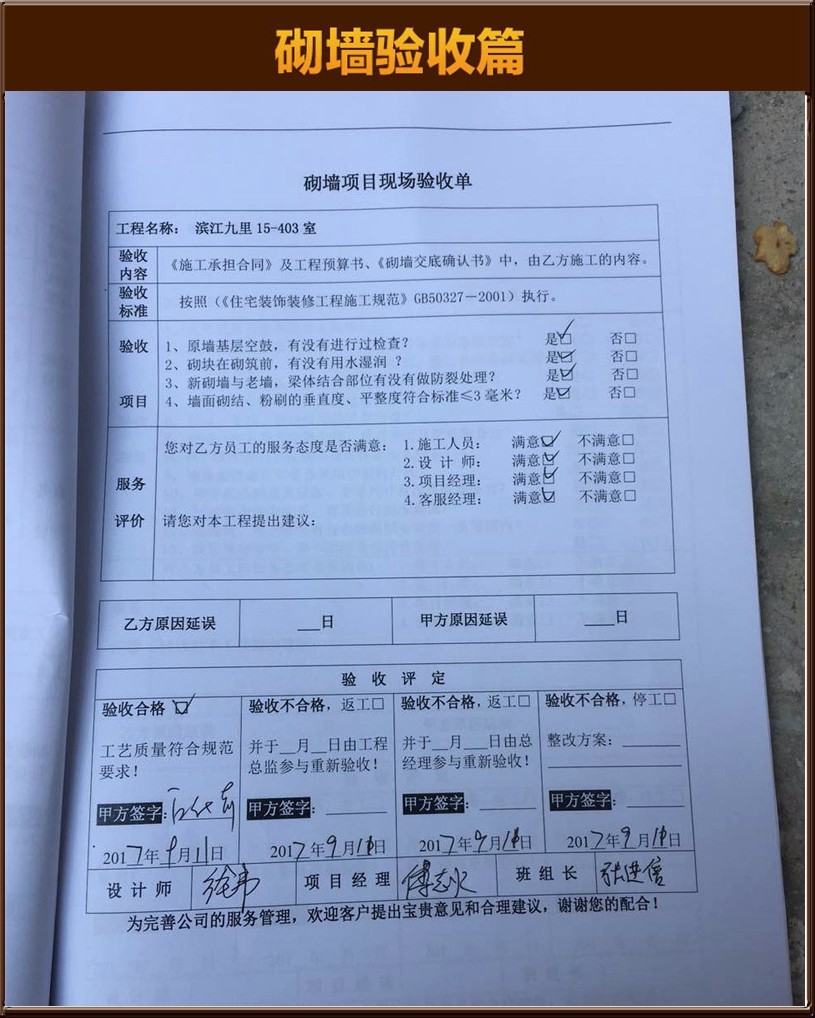 砌墙验收篇
砌墙项目现场验收单
工程名称： 滨江九里 15-403 室
验收内容 《施工承担合同》及工程预算书、《砌墙交底确认书》中，由乙方施工的内容。
验收标准 按照（《住宅装饰装修工程施工规范》GB50327－2001）执行。
验收项目
1、原墙基层空鼓，有没有进行过检查？ 是☑ 否□
2、砌块在砌筑前，有没有用水湿润 ？ 是☑ 否□
3、新砌墙与老墙，梁体结合部位有没有做防裂处理？ 是☑ 否□
4、墙面砌结、粉刷的垂直度、平整度符合标准≤3 毫米？ 是☑ 否□
服务评价
您对乙方员工的服务态度是否满意： 1.施工人员： 满意☑ 不满意□
2.设 计 师： 满意☑ 不满意□
3.项目经理： 满意☑ 不满意□
4.客服经理： 满意☑ 不满意□
请您对本工程提出建议：
乙方原因延误 ___日 甲方原因延误 ____日
验 收 评 定
验收合格 ☑ 验收不合格，返工□ 验收不合格，返工□ 验收不合格，停工□
工艺质量符合规范 并于__月__日由工程 并于__月___日由总 整改方案：________
要求！ 总监参与重新验收！ 经理参与重新验收！
甲方签字： 甲方签字：______ 甲方签字：______ 甲方签字：______
2017年9月11日 2017年9月11日 2017年9月11日 2017年9月11日
设 计 师 徐韦 项 目 经 理 班 组 长 张进信
为完善公司的服务管理，欢迎客户提出宝贵意见和合理建议，谢谢您的配合！